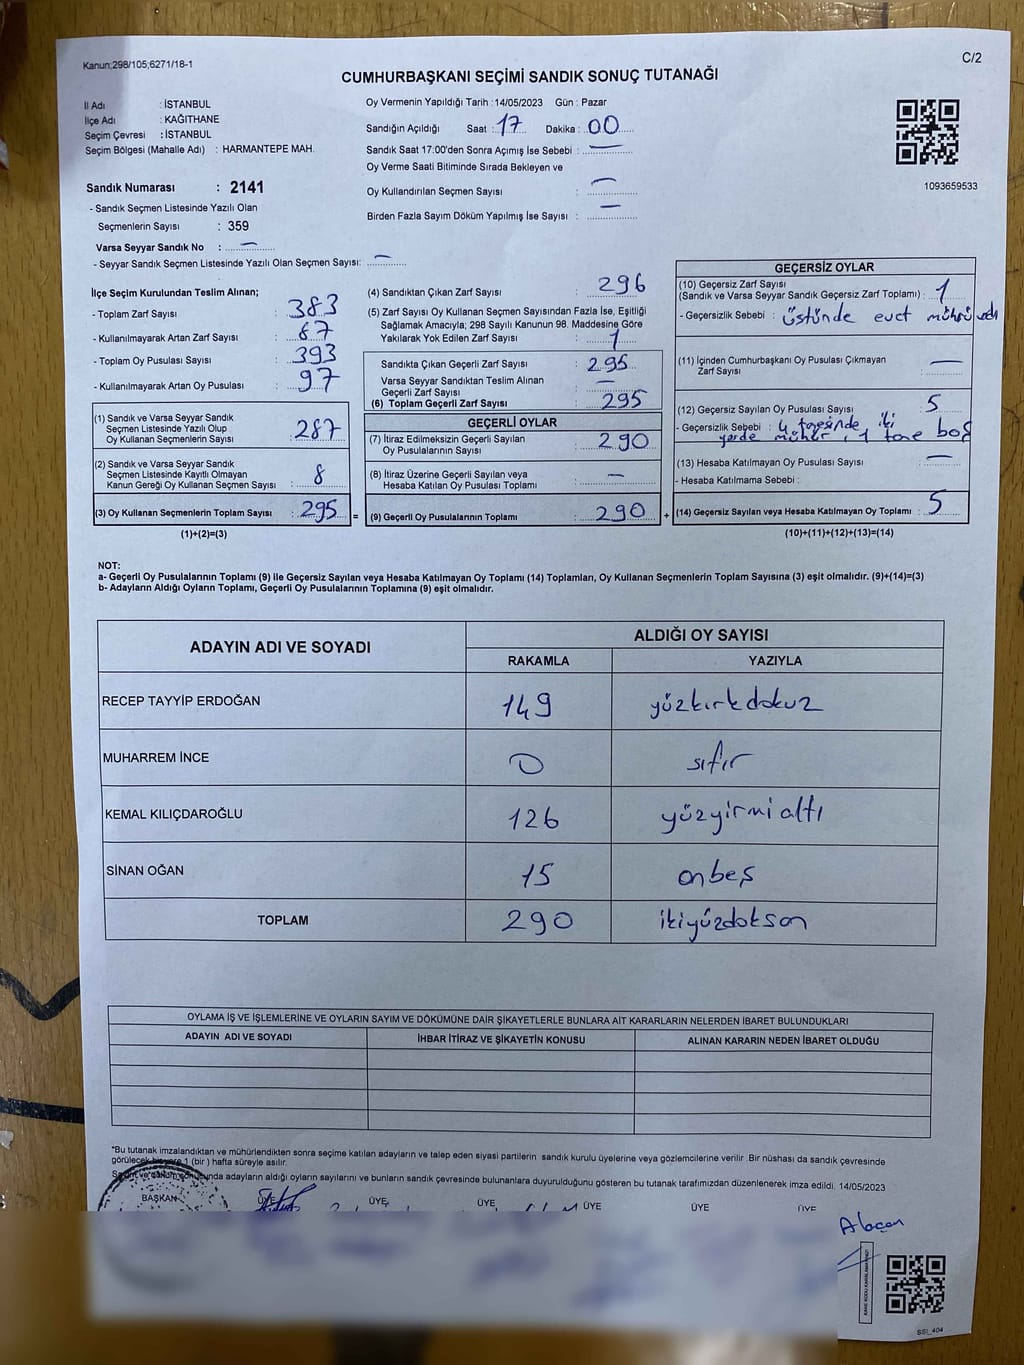 Kanun;298/105;6271/18-1
C/2
CUMHURBAŞKANI SEÇİMİ SANDIK SONUÇ TUTANAĞI
İl Adı : İSTANBUL
İlçe Adı : KAĞITHANE
Seçim Çevresi : İSTANBUL
Seçim Bölgesi (Mahalle Adı) : HARMANTEPE MAH.
Sandık Numarası : 2141
- Sandık Seçmen Listesinde Yazılı Olan
Seçmenlerin Sayısı : 359
Varsa Seyyar Sandık No : —
- Seyyar Sandık Seçmen Listesinde Yazılı Olan Seçmen Sayısı: —
Oy Vermenin Yapıldığı Tarih : 14/05/2023 Gün : Pazar
Sandığın Açıldığı Saat : 17 Dakika : 00
Sandık Saat 17:00'den Sonra Açımış İse Sebebi : —
Oy Verme Saati Bitiminde Sırada Bekleyen ve
Oy Kullandırılan Seçmen Sayısı : —
Birden Fazla Sayım Döküm Yapılmış İse Sayısı : —
1093659533
İlçe Seçim Kurulundan Teslim Alınan;
- Toplam Zarf Sayısı : 383
- Kullanılmayarak Artan Zarf Sayısı : 87
- Toplam Oy Pusulası Sayısı : 393
- Kullanılmayarak Artan Oy Pusulası : 97
(1) Sandık ve Varsa Seyyar Sandık
Seçmen Listesinde Yazılı Olup
Oy Kullanan Seçmenlerin Sayısı : 287
(2) Sandık ve Varsa Seyyar Sandık
Seçmen Listesinde Kayıtlı Olmayan
Kanun Gereği Oy Kullanan Seçmen Sayısı : 8
(3) Oy Kullanan Seçmenlerin Toplam Sayısı : 295 =
(1)+(2)=(3)
(4) Sandıktan Çıkan Zarf Sayısı : 296
(5) Zarf Sayısı Oy Kullanan Seçmen Sayısından Fazla İse, Eşitliği
Sağlamak Amacıyla; 298 Sayılı Kanunun 98. Maddesine Göre
Yakılarak Yok Edilen Zarf Sayısı : 1
Sandıkta Çıkan Geçerli Zarf Sayısı : 295
Varsa Seyyar Sandıktan Teslim Alınan
Geçerli Zarf Sayısı : —
(6) Toplam Geçerli Zarf Sayısı : 295
GEÇERLİ OYLAR
(7) İtiraz Edilmeksizin Geçerli Sayılan
Oy Pusulalarının Sayısı : 290
(8) İtiraz Üzerine Geçerli Sayılan veya
Hesaba Katılan Oy Pusulası Toplamı : —
(9) Geçerli Oy Pusulalarının Toplamı : 290 +
GEÇERSİZ OYLAR
(10) Geçersiz Zarf Sayısı
(Sandık ve Varsa Seyyar Sandık Geçersiz Zarf Toplamı) : 1
- Geçersizlik Sebebi : üstünde evet mührü
(11) İçinden Cumhurbaşkanı Oy Pusulası Çıkmayan
Zarf Sayısı : —
(12) Geçersiz Sayılan Oy Pusulası Sayısı : 5
- Geçersizlik Sebebi : 4 tanesinde iki
yerde mühür, 1 tane boş
(13) Hesaba Katılmayan Oy Pusulası Sayısı : —
- Hesaba Katılmama Sebebi :
(14) Geçersiz Sayılan veya Hesaba Katılmayan Oy Toplamı : 5
(10)+(11)+(12)+(13)=(14)
NOT:
a- Geçerli Oy Pusulalarının Toplamı (9) ile Geçersiz Sayılan veya Hesaba Katılmayan Oy Toplamı (14) Toplamları, Oy Kullanan Seçmenlerin Toplam Sayısına (3) eşit olmalıdır. (9)+(14)=(3)
b- Adayların Aldığı Oyların Toplamı, Geçerli Oy Pusulalarının Toplamına (9) eşit olmalıdır.
ADAYIN ADI VE SOYADI ALDIĞI OY SAYISI
RAKAMLA YAZIYLA
RECEP TAYYİP ERDOĞAN 149 yüzkırkdokuz
MUHARREM İNCE 0 sıfır
KEMAL KILIÇDAROĞLU 126 yüzyirmialtı
SİNAN OĞAN 15 onbeş
TOPLAM 290 ikiyüzdoksan
OYLAMA İŞ VE İŞLEMLERİNE VE OYLARIN SAYIM VE DÖKÜMÜNE DAİR ŞİKAYETLERLE BUNLARA AİT KARARLARIN NELERDEN İBARET BULUNDUKLARI
ADAYIN ADI VE SOYADI İHBAR İTİRAZ VE ŞİKAYETİN KONUSU ALINAN KARARIN NEDEN İBARET OLDUĞU
*Bu tutanak imzalandıktan ve mühürlendikten sonra seçime katılan adayların ve talep eden siyasi partilerin sandık kurulu üyelerine veya gözlemcilerine verilir .Bir nüshası da sandık çevresinde
görülecek bir yere 1 (bir ) hafta süreyle asılır.
Sayım ve döküm sonucunda adayların aldığı oyların sayılarını ve bunların sandık çevresinde bulunanlara duyurulduğunu gösteren bu tutanak tarafımızdan düzenlenerek imza edildi. 14/05/2023
BAŞKAN ÜYE ÜYE ÜYE ÜYE ÜYE ÜYE
SSI_404